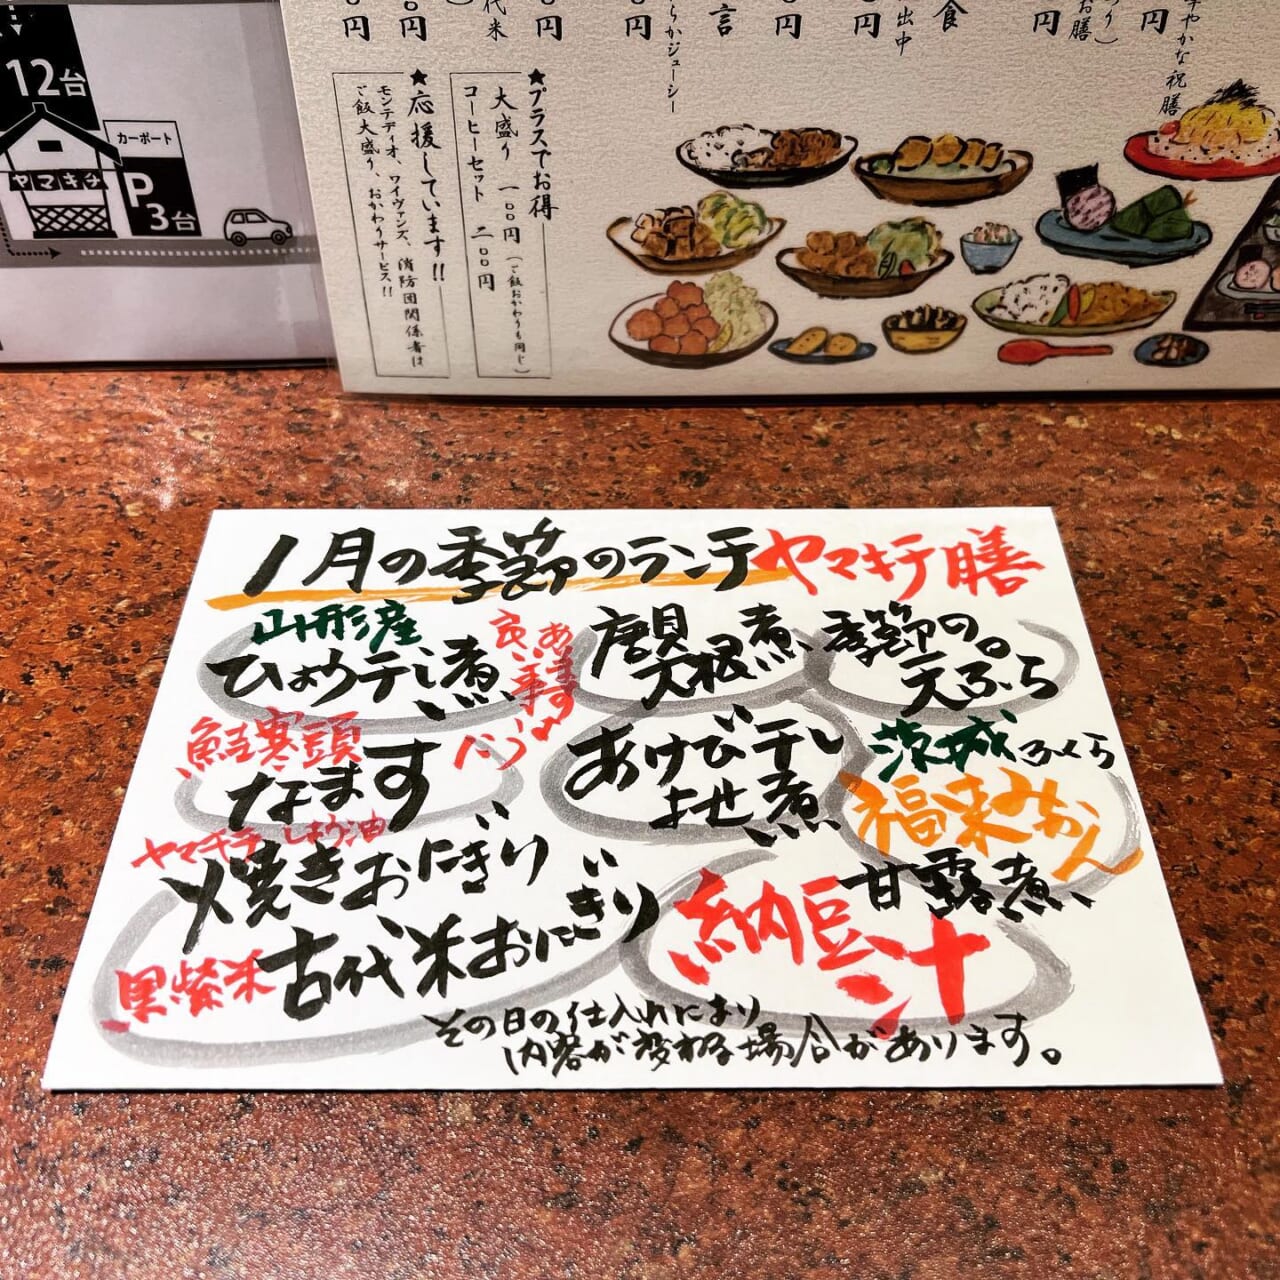 12台
カーポート
ヤマキチ
P
3台
円
円
代米
円
円
らかジューシー
言
円
円
出中
食
円
り)
お膳
円
やかな祝膳
★プラスでお得
大盛り 一〇〇円(ご飯おかわりも同じ)
コーヒーセット 二〇〇円
★応援しています!!
モンテディオ、ワイヴァンズ、消防団関係者は
ご飯大盛り、おかわりサービス!!
1月の季節のランチ ヤマキチ膳
山形産
ひょう干し煮
良い事
あります
鮭寒頭
なます
大根煮
季節の。
天ぷら
あけび干し
よせ煮
茨城 ふくら
福来みかん
甘露煮
ヤマキチ しょう油
焼きおにぎり
黒紫米 古代米おにぎり
納豆
汁
その日の仕入れにより
内容が変わる場合があります。